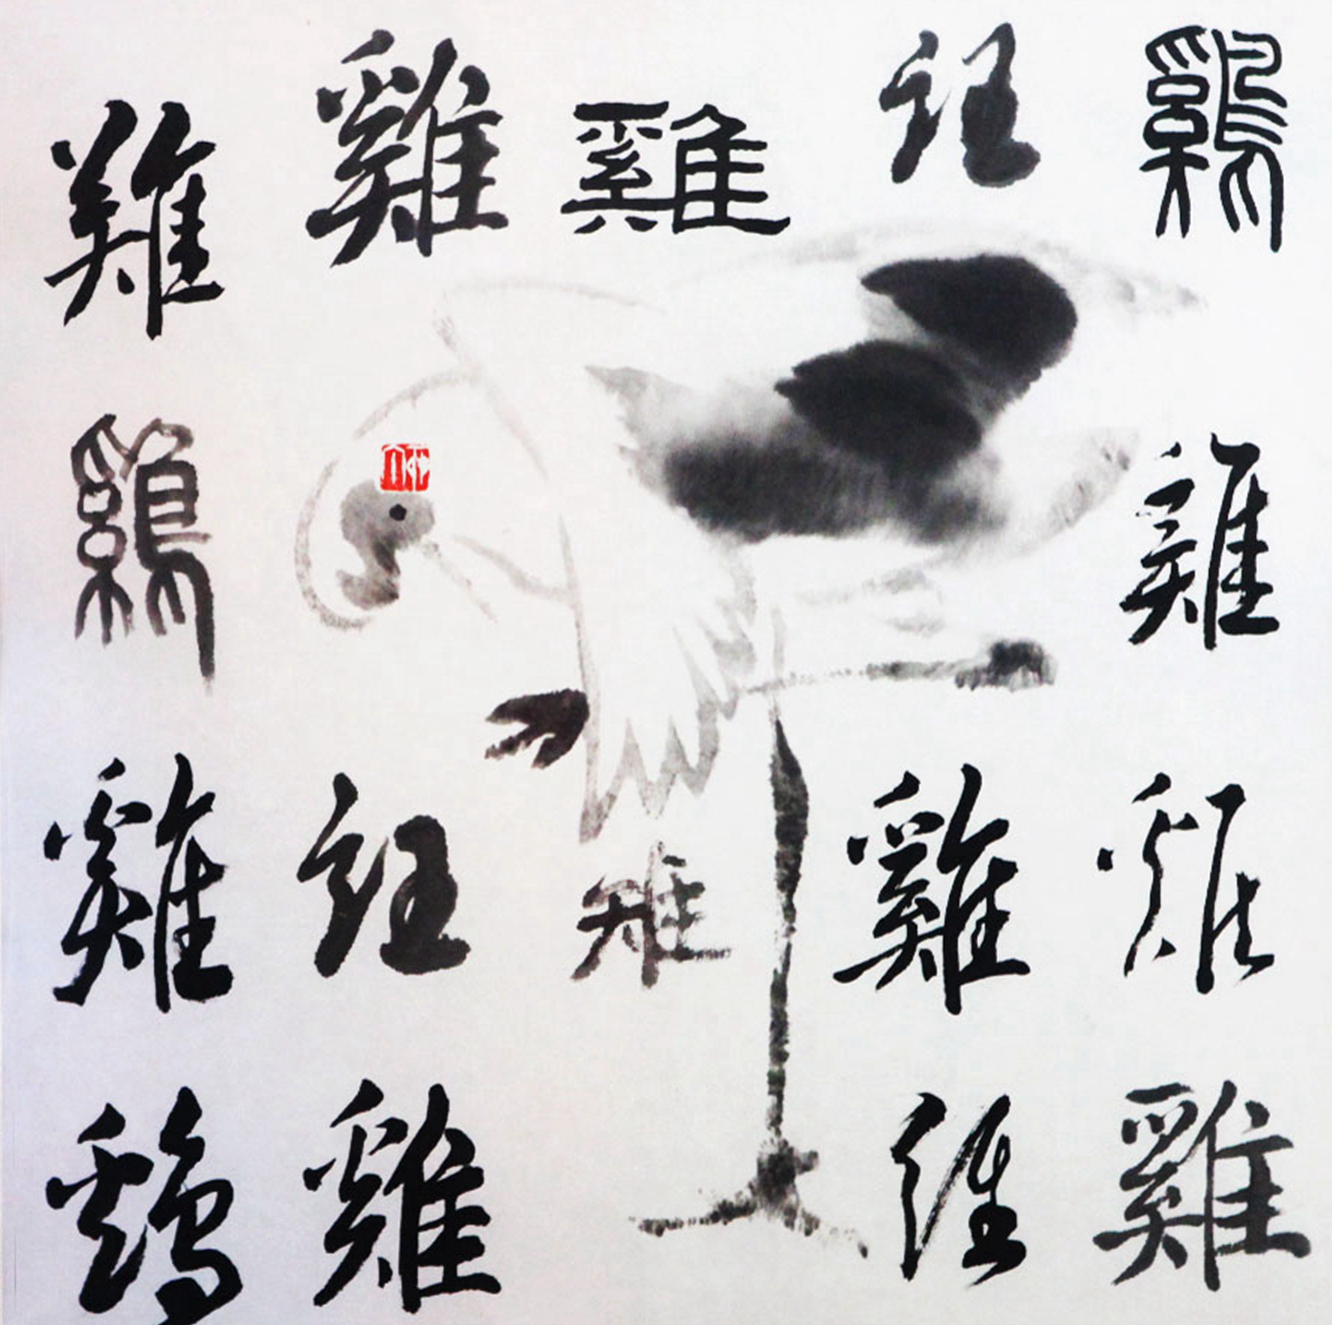 雞 雞 雞 雞 鷄
鷄 雞
雞 雞 雉 雞 雞
鷄 雞 雞 雞